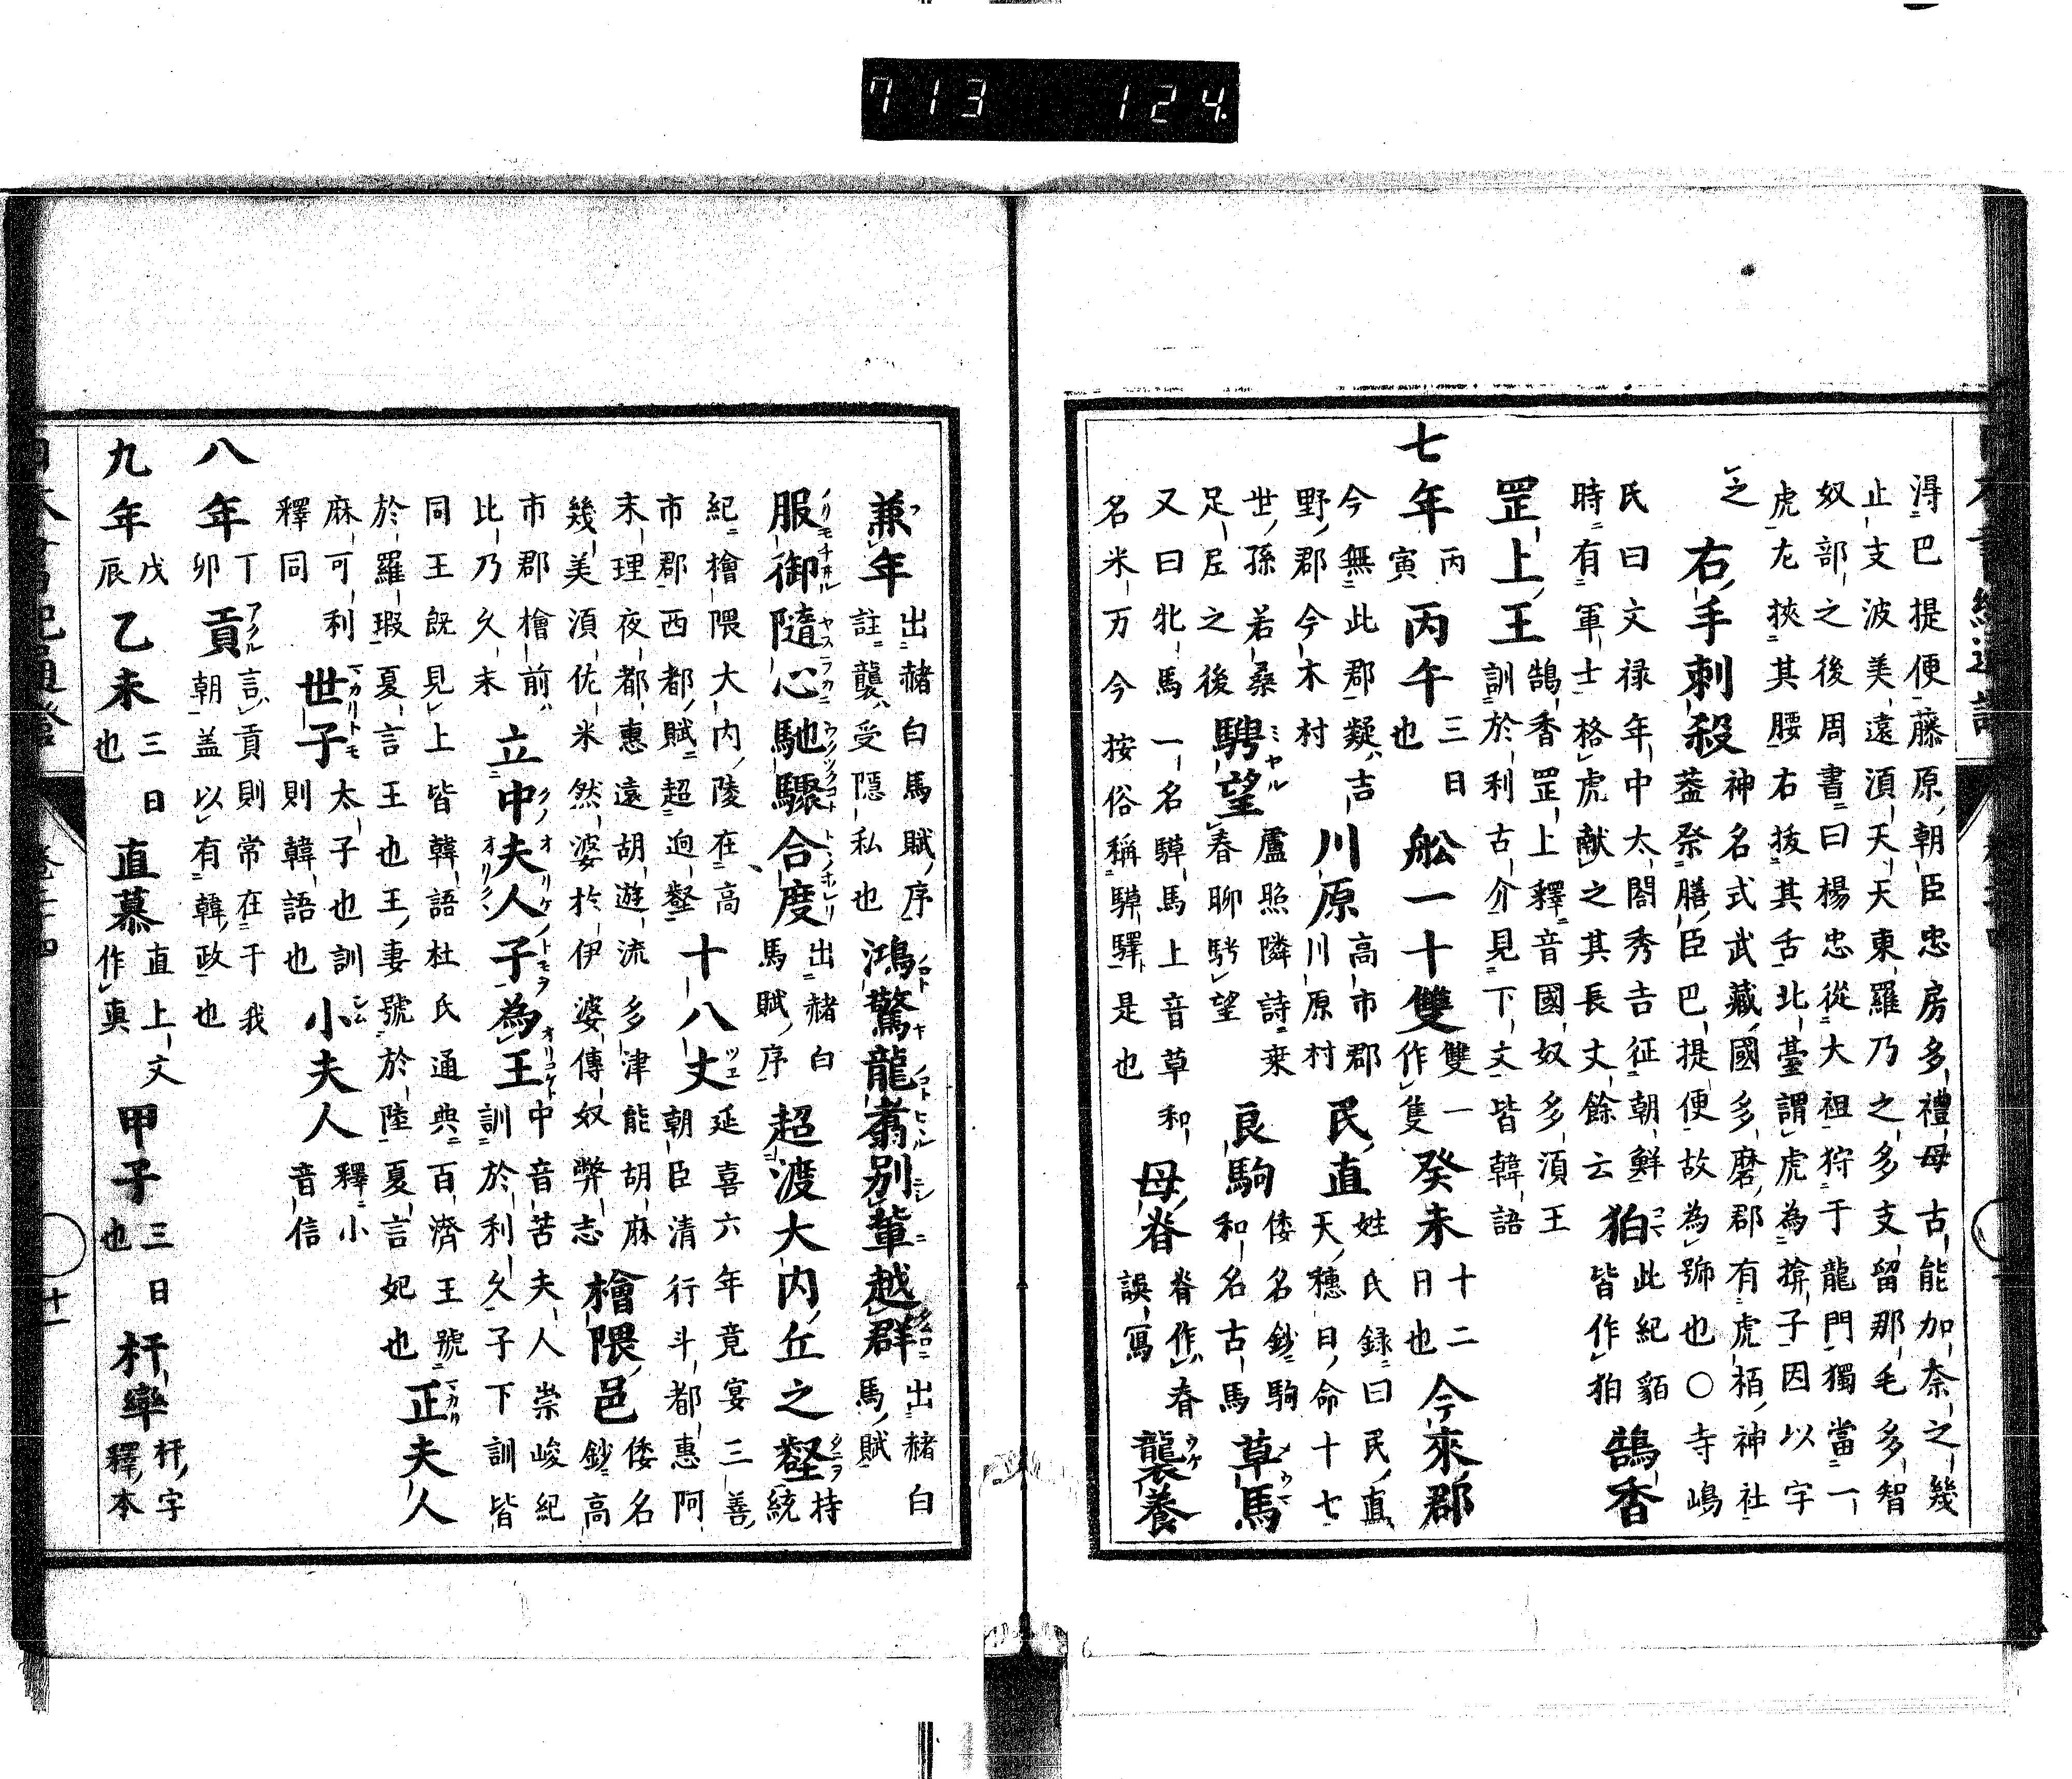 713 124
淂巴提便藤原朝臣忠房多禮母古能加奈之幾
止支波美遠湏天天東羅乃之多支留那毛多智
奴部之後周書曰楊忠從大祖狩于龍門獨當一
虎左挾其腰右拔其舌北臺謂虎為揜子因以字
之
右手刺殺
神名式武藏國多磨郡有虎栢神社
葢祭膳臣巴提便故為號也〇寺嶋
氏曰文禄年中太閤秀吉征朝鮮
時有軍士格虎献之其長丈餘云
狛
此紀貊
皆作狛
鵠香
罡上王
鵠香罡上釋音國奴多湏王
訓於利古介見下文皆韓語
七年
丙寅
丙午
三日也
舩一十雙
雙一作隻
癸未
十二日也
今來郡
今無此郡疑吉
野郡今木村
川原
高市郡
川原村
民直
姓氏録曰民直
天穗日命十七
世孫若桑
足尼之後
騁望
盧照隣詩乗
春聊騁望
良駒
倭名鈔駒
和名古馬
草馬
又曰牝馬一名騲馬上音草和
名米万今按俗稱騲驛是也
母脊
脊作春
誤寫
襲養
兼年
出赭白馬賦序
註襲受隱私也
鴻驚龍翥別輩越群
出赭白
馬賦
服御隨心馳驟合度
出赭白
馬賦序
超渡大内丘之壑
持統
紀檜隈大内陵在高
市郡西都賦超迥壑
十八丈
延喜六年竟宴三善
朝臣清行斗都惠阿
末理夜都惠遠胡遊流多津能胡麻
幾美湏佐米然婆於伊婆傳奴弊志
檜隈邑
倭名
鈔高
市郡檜前
比乃久末
立中夫人子為王
中音苦夫人崇峻紀
訓於利久子下訓皆
同王既見上皆韓語杜氏通典百濟王號
於羅瑕夏言王也王妻號於陸夏言妃也
正夫人
麻可利
釋同
世子
太子也訓
則韓語也
小夫人
釋小
音信
八年
丁卯
貢
言貢則常在于我
朝盖以有韓政也
九年
戊辰
乙未
三日也
直慕
直上文
作真
甲子
三日也
杆率
杆字
釋本